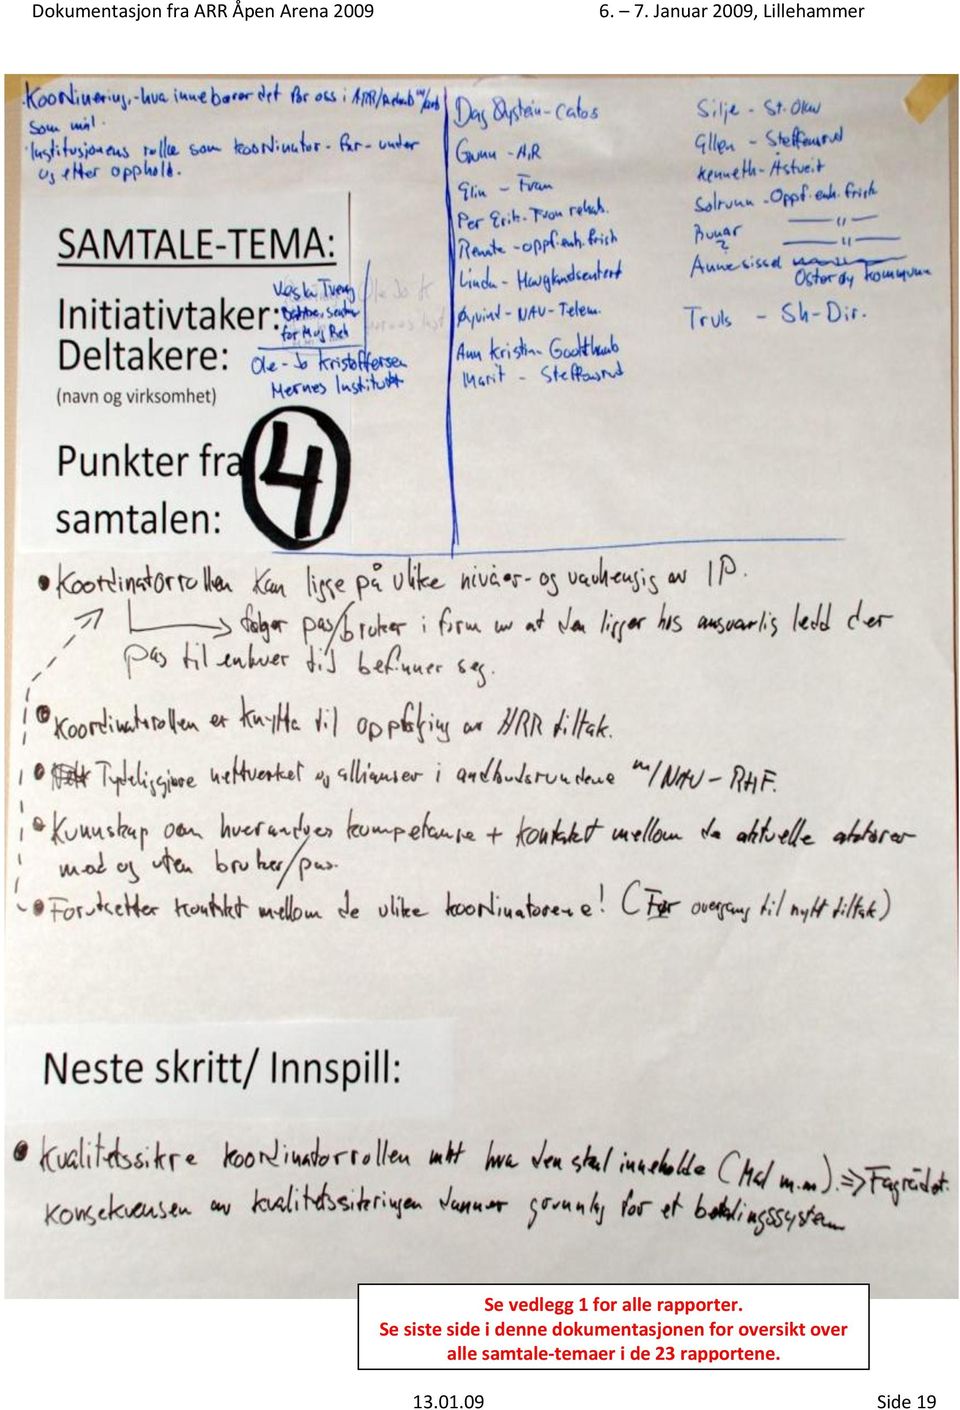 Dokumentasjon fra ARR Åpen Arena 2009 6. – 7. Januar 2009, Lillehammer
Koordinering,-hva innebærer det for oss i ARR/Rehab m/arb
som mål.
Institusjonens rolle som koordinator - før - under
og etter opphold.
SAMTALE-TEMA:
Initiativtaker:
Tveng
for Maj Reh
Deltakere:
Ole-Jo Kristoffersen
Mernes Institutt
(navn og virksomhet)
Dag Øystein - Catos
Gunn - AiR
Elin - Fram
Per Erik - Fram rehab.
Renate - oppf.enh. frisk
Linda - Haugland
Øyvind - NAV - Telem.
Ann Kristin - Godthaab
Marit - Steffensrud
Silje - St. Olav
Ellen - Steffensrud
Kenneth - Åstveit
Solrunn - Oppf. enh. frisk
Runar — " —
? — " —
Annesissel Osterøy kommune
Truls - Sh-Dir.
Punkter fra
samtalen:
4
• Koordinatorrollen kan ligge på ulike nivåer - og uavhengig av IP.
følger pas/bruker i form av at den ligger hos ansvarlig ledd der
pas til enhver tid befinner seg.
• Koordinatorrollen er knytta til oppfølging av ARR tiltak.
• Tydeliggjøre nettverket og allianser i anbudsrundene m/NAV - RHF.
• Kunnskap om hverandres kompetanse + kontakt mellom de aktuelle aktører
med og uten bruker/pas.
• Forutsetter kontakt mellom de ulike koordinatorene! (Før overgang til nytt tiltak)
Neste skritt/ Innspill:
• Kvalitetssikre koordinatorrollen mht hva den skal inneholde (Mal m.m). => Fagrådet.
Konsekvensen av kvalitetssikringen danner grunnlag for et betalingssystem
Se vedlegg 1 for alle rapporter.
Se siste side i denne dokumentasjonen for oversikt over
alle samtale-temaer i de 23 rapportene.
13.01.09 Side 19